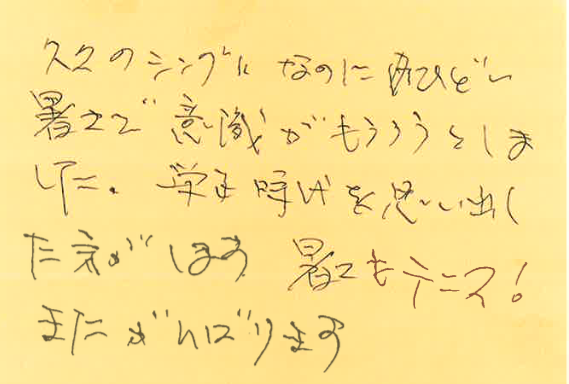 久々のシングルなのにひどい
暑さで意識がもうろうとしま
した。学生時代を思い出し
た気がします 暑くてもテニス!
またがんばります